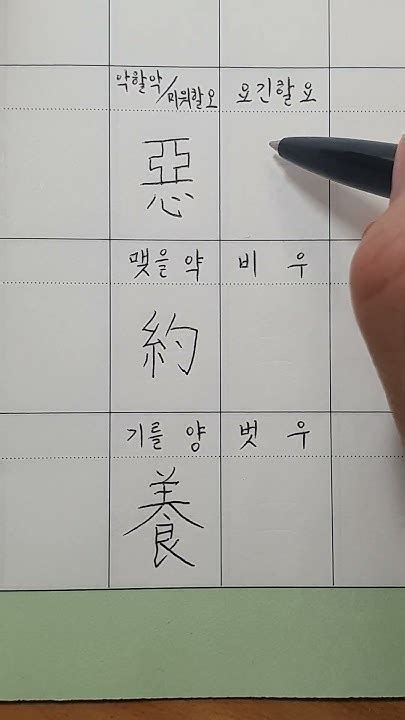 악할 악/미워할 오 요긴할 요
惡
맺을 약 비 우
約
기를 양 벗 우
養